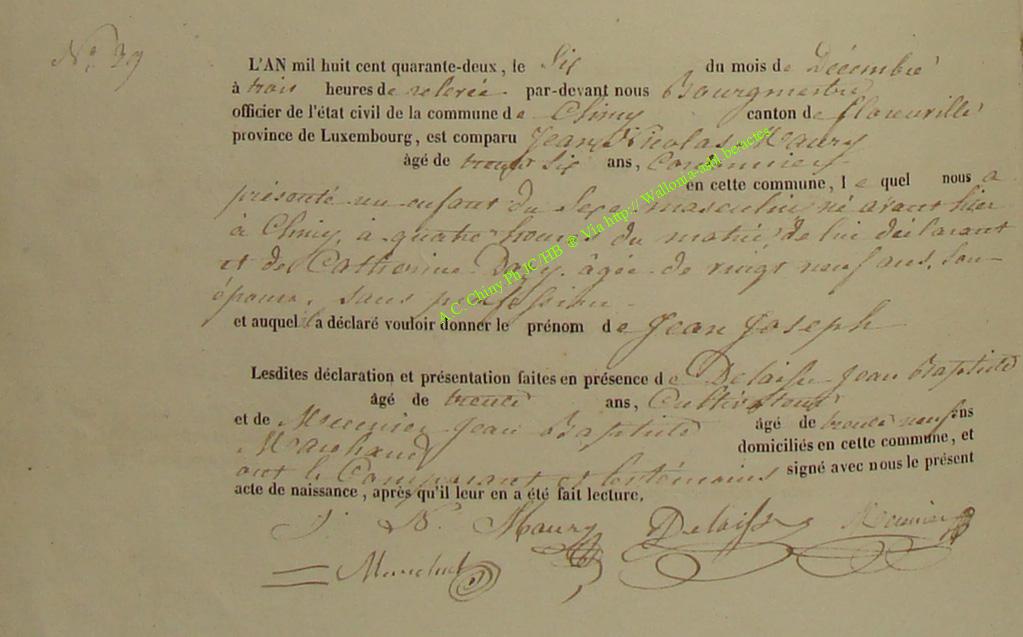 No 39
L'AN mil huit cent quarante-deux, le Six du mois de Décembre
à trois heures de relevée par-devant nous Bourgmestre
officier de l'état civil de la commune de Chiny canton de florenville
province de Luxembourg, est comparu Jean Nicolas Maury
âgé de trente Six ans, Cordonnier
en cette commune, le quel nous a
présenté un enfant du Sexe masculin né avant hier
à Chiny, à quatre heures du matin, de lui déclarant
et de Catherine âgée de vingt neuf ans, Son
épouse, sans profession
et auquel il a déclaré vouloir donner le prénom de Jean Joseph
Lesdites déclaration et présentation faites en présence de Delaisse Jean Baptiste
âgé de trente ans, Cultivateur
et de Meunier Jean Baptiste âgé de trente neuf ans
Marchand domiciliés en cette commune, et
ont le Comparant et les témoins signé avec nous le présent
acte de naissance, après qu'il leur en a été fait lecture.
J. N. Maury Delaisse Meunier
A.C. Chiny Ph JC/HB ® Via http://Wallonia-asbl.be-actes